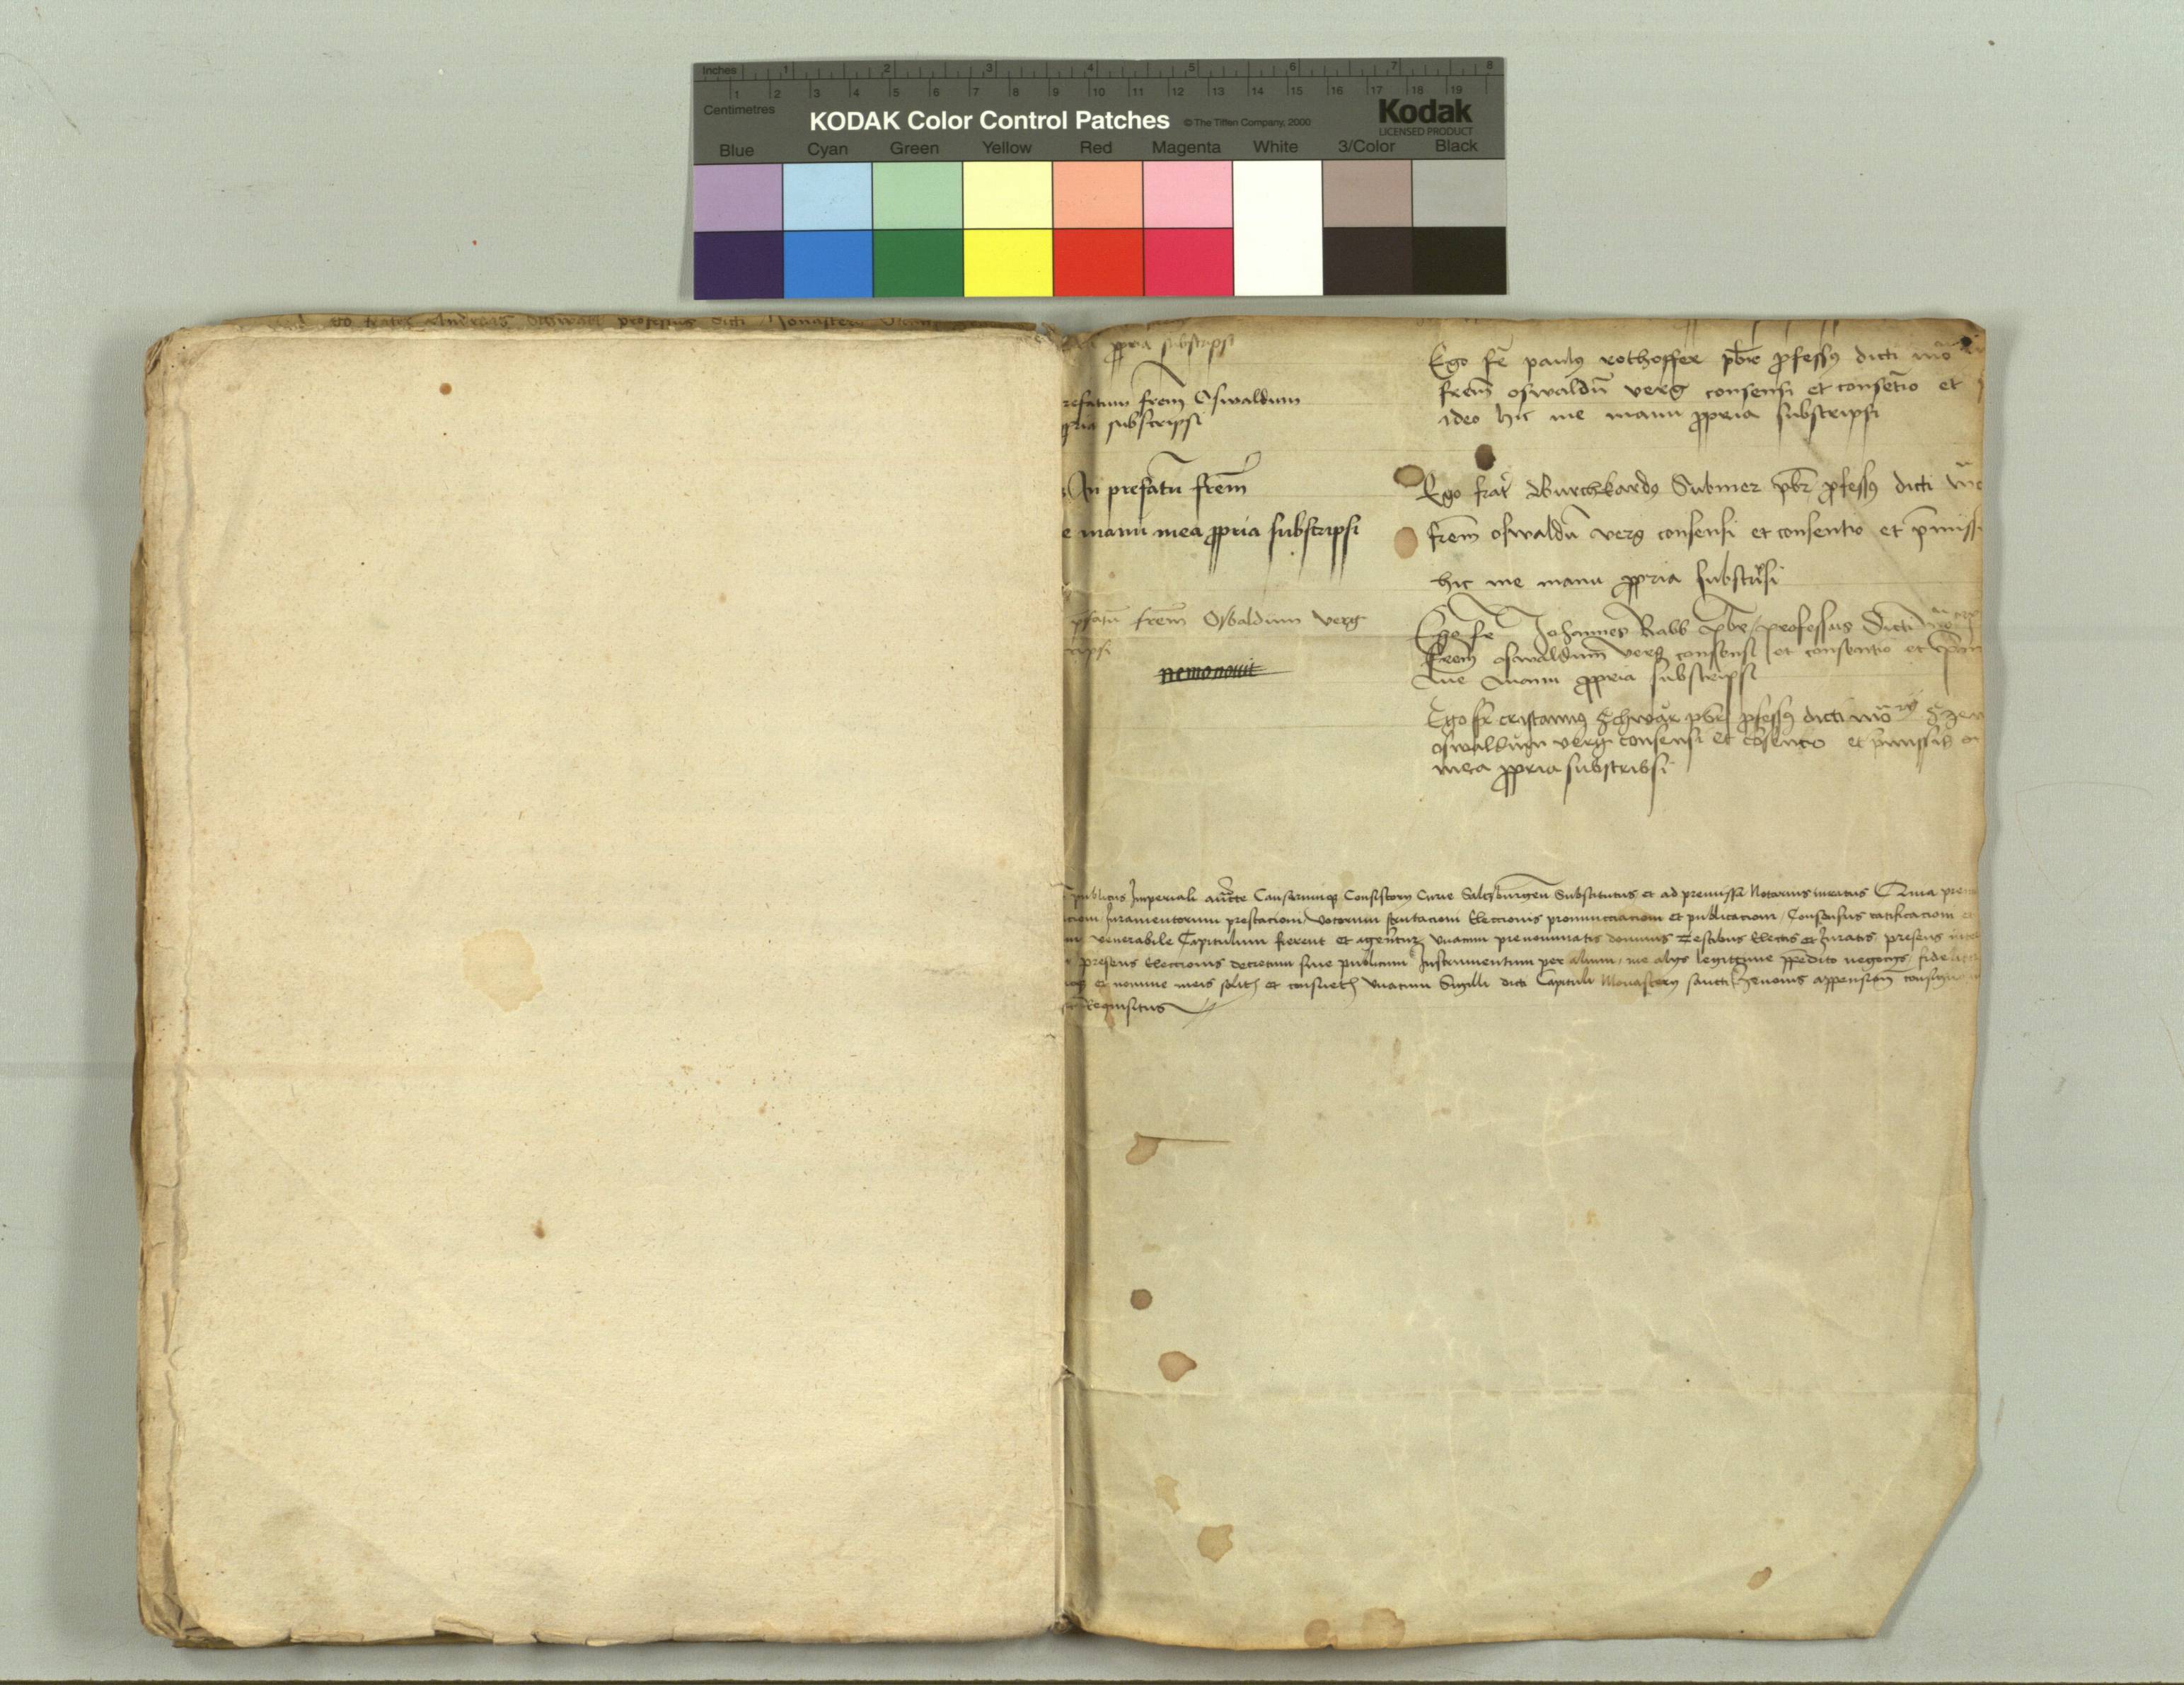 Inches 1 2 3 4 5 6 7 8
1 2 3 4 5 6 7 8 9 10 11 12 13 14 15 16 17 18 19
Centimetres
KODAK Color Control Patches © The Tiffen Company, 2000 Kodak
LICENSED PRODUCT
Blue Cyan Green Yellow Red Magenta White 3/Color Black
frater Andreas professus dicti Monasterii
ppria subscripsi
refatum frem Oswaldum
ppria subscripsi
In prefatu frem
e manu mea ppria subscripsi
pfatu frem Osbaldum verg
ripsi
nemo nouit
Ego fr paulus rothoffer pbr pfessus dicti mo
frem oswaldu verg consensi et consetio et
ideo hic me manu ppria subscripsi
Ego frat Burchkardus Submer pbr pfessus dicti mo
frem oswaldu verg consensi et consentio et pmiss
hic me manu ppria substrisi
Ego fr Johannes Rabb pbr professus Dicti
frem oswaldum verg consensi et consentio et
me manu ppria subscripsi
Ego fr cristannus Schwar pbr pfessus dicti mo
oswaldum verg consensi et cosentio et pmissis
mea ppria substribsi
publicus Imperiali aucte Causarumq Consistorij Curie Saltzburgen Substitutus et ad premissa Notarius iuratus Quia
Iuramentorum prestacioni Votorum scrutacioni Eleccionis pronunctiacioni et publicacioni Consensus ratificacioni
venerabile Capitulum fierent et agerentur vnacum prenominatis dominis Testibus Electis et Iuratis presens
presens Eleccionis decretum siue publicum Instrumentum per alium me alijs legittime ppedito negocijs
et nomine meis solitis et consuetis vnacum Sigilli dicti Capituli Monasterij sancti Zenonis appensione
Requisitus